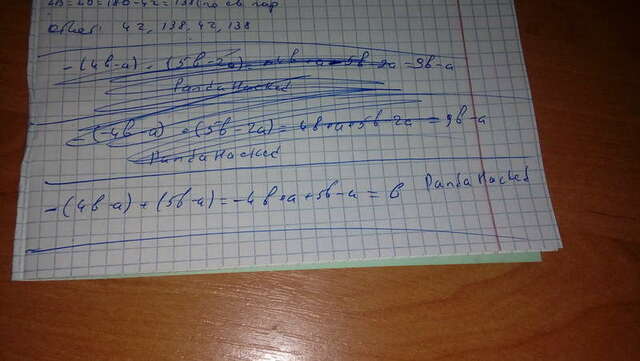 Ответ: 42, 138, 42, 138
-(4b-a) - (5b-2a) = 4b 5b 2a = 9b-a
PandaHacked
-(-4b-a) + (5b-2a) = 4b+a+5b-2a = 9b-a
PandaHacked
-(4b-a) + (5b-a) = -4b+a+5b-a = b PandaHacked